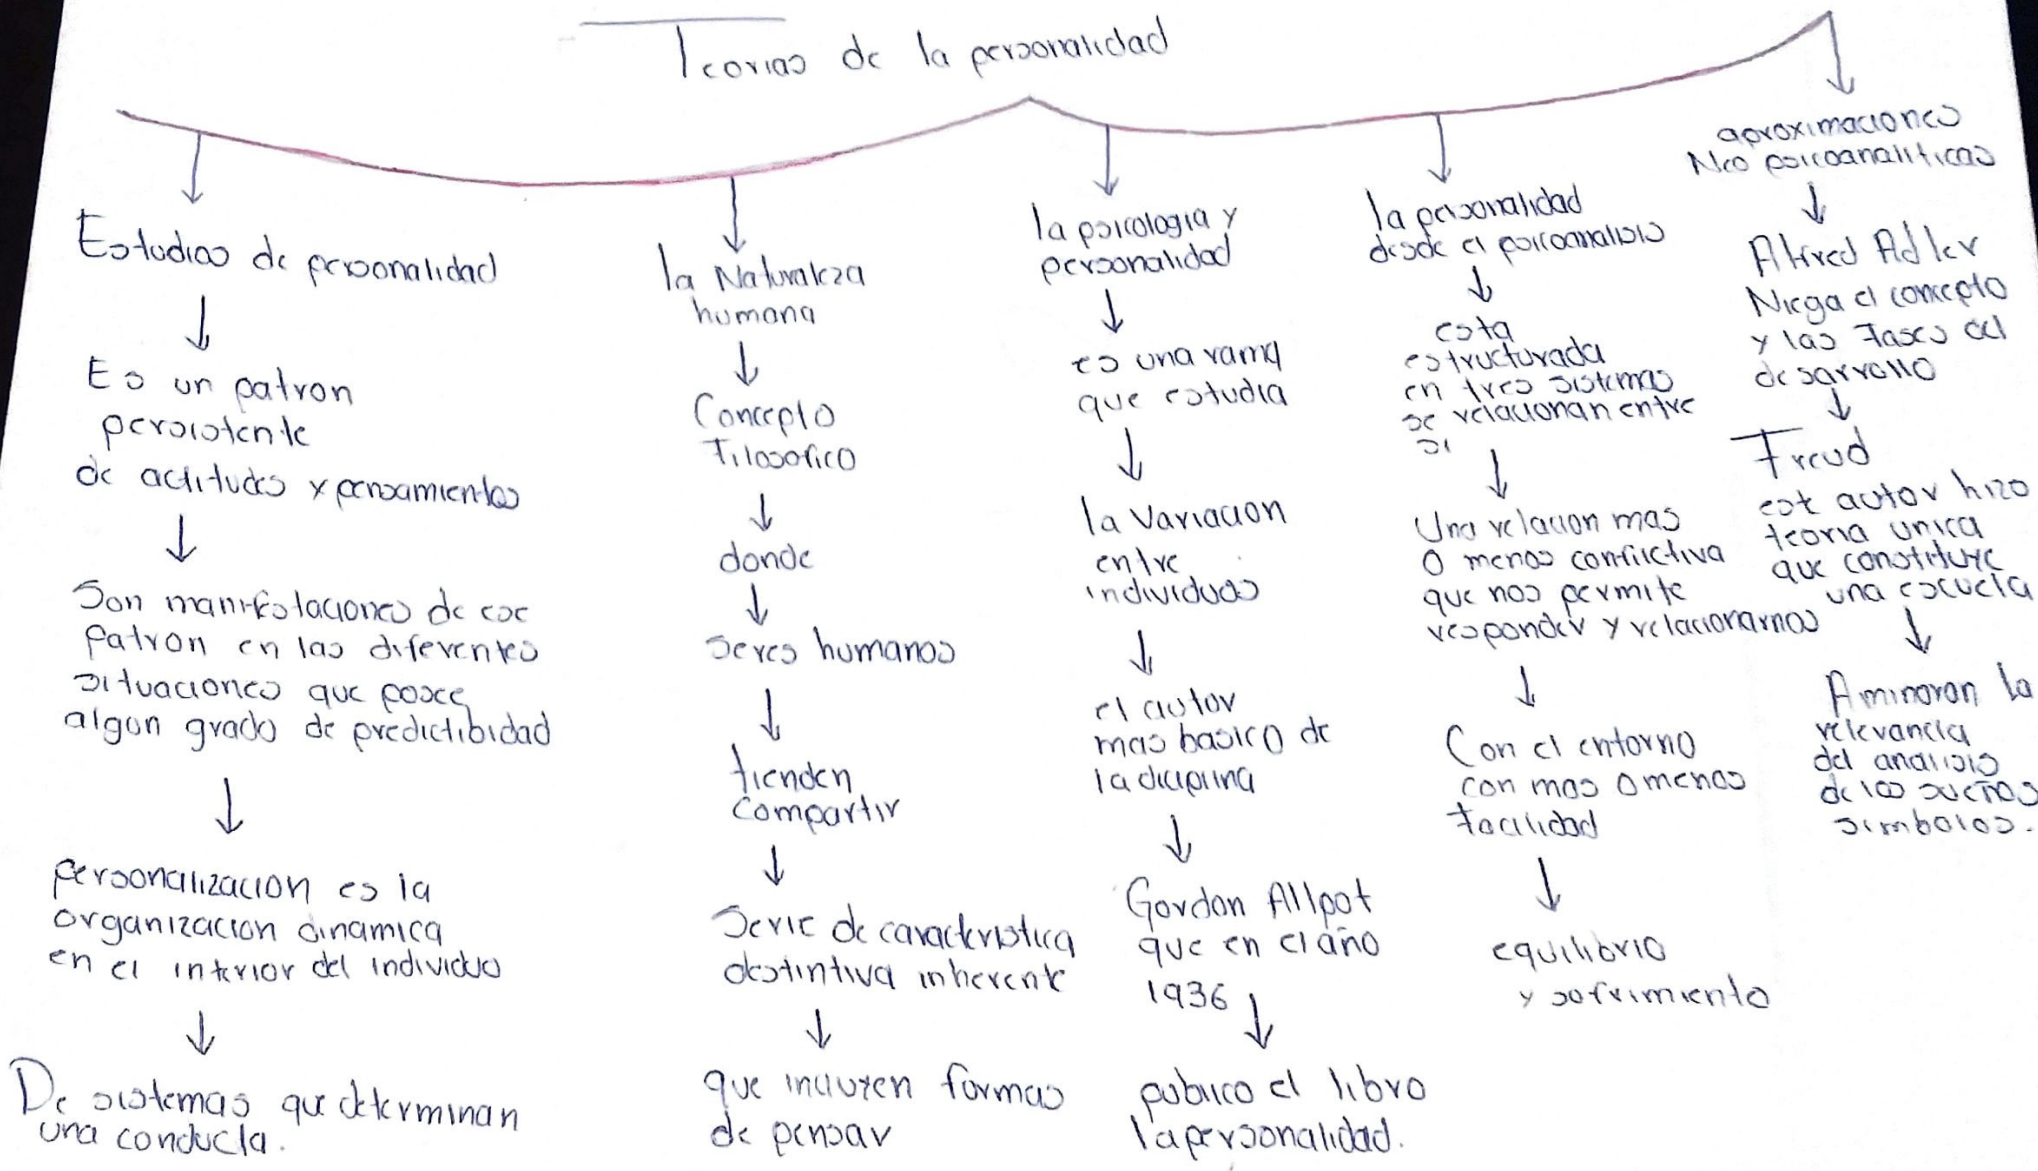 Teorias de la personalidad
Estudios de personalidad
Es un patron
persistente
de actitudes y pensamientos
Son manifestaciones de ese
Patron en las diferentes
situaciones que posee
algun grado de predictibidad
personalizacion es la
organizacion dinamica
en el interior del individuo
De sistemas que determinan
una conducta.
la Naturaleza
humana
Concepto
Filosofico
donde
seres humanos
tienden
compartir
Serie de caracteristica
destintiva inherente
que incluyen formas
de pensar
la psicologia y
personalidad
es una rama
que estudia
la variacion
entre
individuos
el autor
mas basico de
la diciplina
Gordon Allpot
que en el año
1936
publico el libro
la personalidad.
la personalidad
desde el psicoanalisis
esta
estructurada
en tres sistemas
se relacionan entre
si
Una relacion mas
o menos conflictiva
que nos permite
responder y relacionarnos
Con el entorno
con mas o menos
facilidad
equilibrio
y sofrimiento
aproximaciones
Neo psicoanaliticas
Alfred Adler
Niega el concepto
y las fases del
desarrollo
Freud
este autor hizo
teoria unica
que constituye
una escuela
Aminoran la
relevancia
del analisis
de los sueños
simbolos.